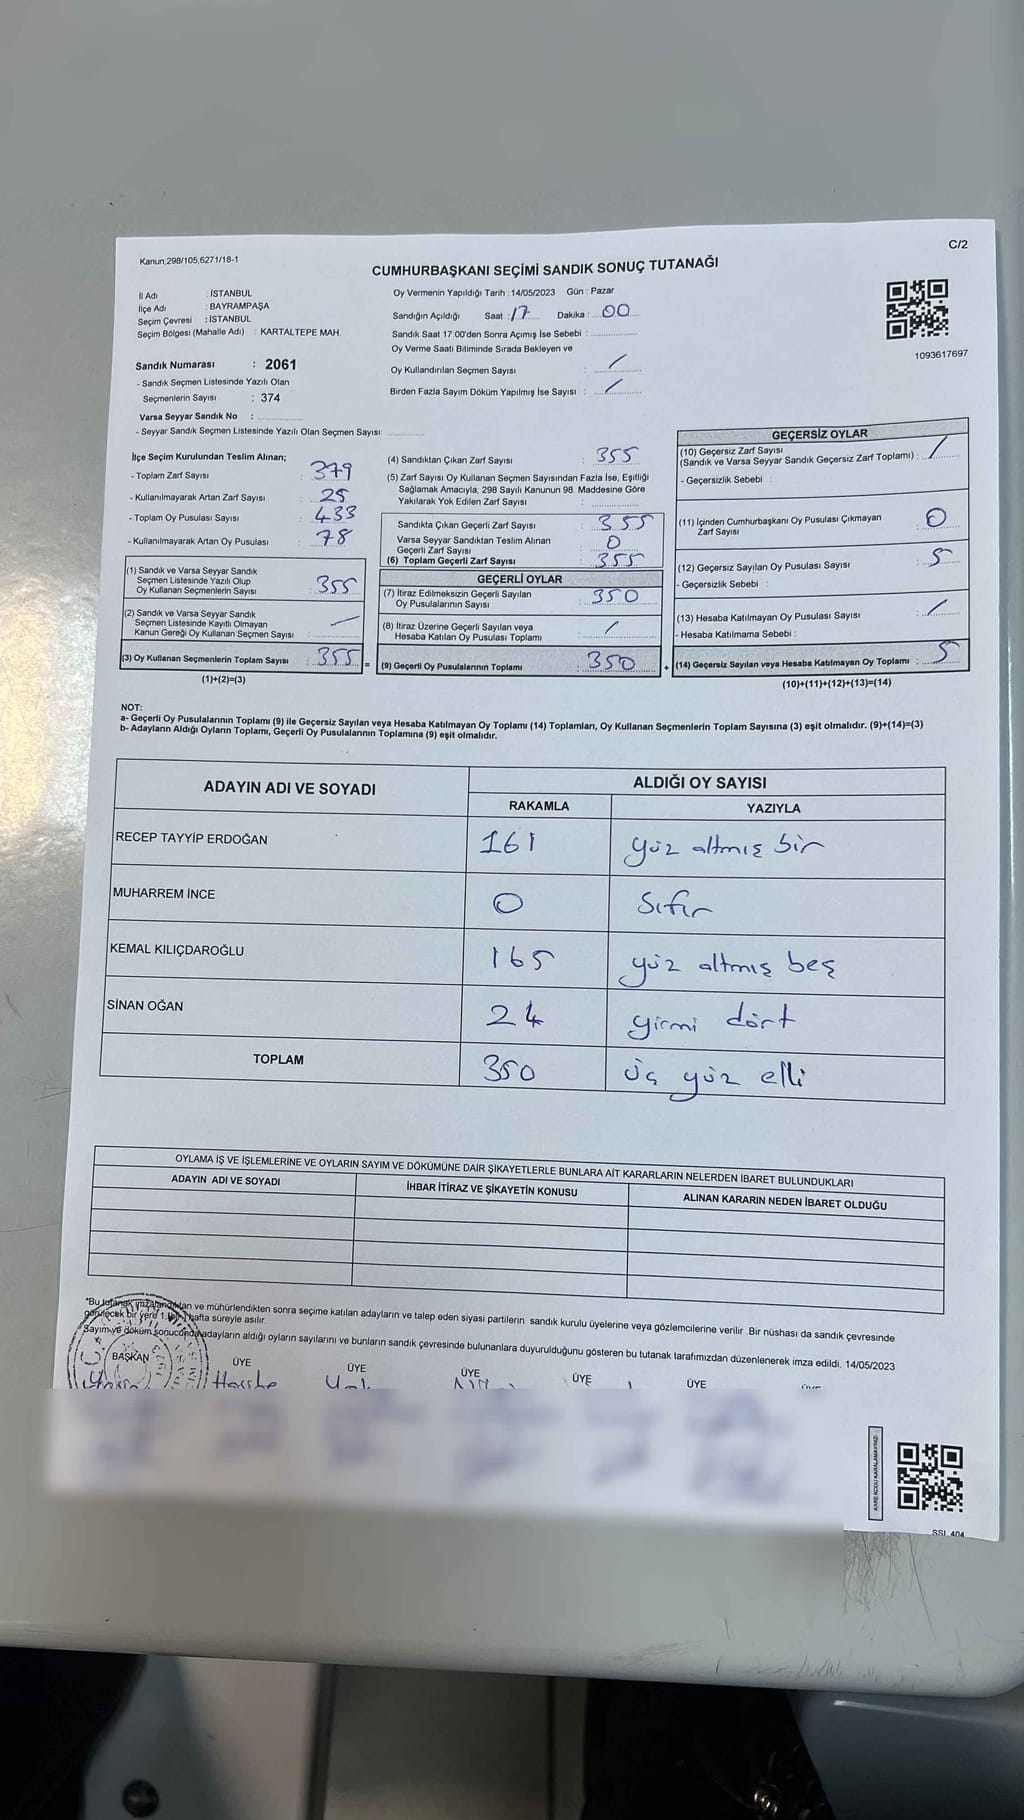 C/2
Kanun,298/105,6271/18-1
CUMHURBAŞKANI SEÇİMİ SANDIK SONUÇ TUTANAĞI
İl Adı : İSTANBUL
İlçe Adı : BAYRAMPAŞA
Seçim Çevresi : İSTANBUL
Seçim Bölgesi (Mahalle Adı) : KARTALTEPE MAH.
Oy Vermenin Yapıldığı Tarih : 14/05/2023 Gün : Pazar
Sandığın Açıldığı Saat : 17 Dakika : 00
Sandık Saat 17.00'den Sonra Açımış İse Sebebi :
Oy Verme Saati Bitiminde Sırada Bekleyen ve
Oy Kullandırılan Seçmen Sayısı : /
Birden Fazla Sayım Döküm Yapılmış İse Sayısı : /
1093617697
Sandık Numarası : 2061
- Sandık Seçmen Listesinde Yazılı Olan
Seçmenlerin Sayısı : 374
Varsa Seyyar Sandık No :
- Seyyar Sandık Seçmen Listesinde Yazılı Olan Seçmen Sayısı:
İlçe Seçim Kurulundan Teslim Alınan;
- Toplam Zarf Sayısı : 379
- Kullanılmayarak Artan Zarf Sayısı : 25
- Toplam Oy Pusulası Sayısı : 433
- Kullanılmayarak Artan Oy Pusulası : 78
(1) Sandık ve Varsa Seyyar Sandık
Seçmen Listesinde Yazılı Olup
Oy Kullanan Seçmenlerin Sayısı : 355
(2) Sandık ve Varsa Seyyar Sandık
Seçmen Listesinde Kayıtlı Olmayan
Kanun Gereği Oy Kullanan Seçmen Sayısı : /
(3) Oy Kullanan Seçmenlerin Toplam Sayısı : 355 =
(1)+(2)=(3)
(4) Sandıktan Çıkan Zarf Sayısı : 355
(5) Zarf Sayısı Oy Kullanan Seçmen Sayısından Fazla İse, Eşitliği
Sağlamak Amacıyla, 298 Sayılı Kanunun 98. Maddesine Göre
Yakılarak Yok Edilen Zarf Sayısı :
Sandıkta Çıkan Geçerli Zarf Sayısı : 355
Varsa Seyyar Sandıktan Teslim Alınan
Geçerli Zarf Sayısı : 0
(6) Toplam Geçerli Zarf Sayısı : 355
GEÇERLİ OYLAR
(7) İtiraz Edilmeksizin Geçerli Sayılan
Oy Pusulalarının Sayısı : 350
(8) İtiraz Üzerine Geçerli Sayılan veya
Hesaba Katılan Oy Pusulası Toplamı : /
(9) Geçerli Oy Pusulalarının Toplamı : 350 +
GEÇERSİZ OYLAR
(10) Geçersiz Zarf Sayısı
(Sandık ve Varsa Seyyar Sandık Geçersiz Zarf Toplamı) : /
- Geçersizlik Sebebi :
(11) İçinden Cumhurbaşkanı Oy Pusulası Çıkmayan
Zarf Sayısı : 0
(12) Geçersiz Sayılan Oy Pusulası Sayısı : 5
- Geçersizlik Sebebi :
(13) Hesaba Katılmayan Oy Pusulası Sayısı : /
- Hesaba Katılmama Sebebi :
(14) Geçersiz Sayılan veya Hesaba Katılmayan Oy Toplamı : 5
(10)+(11)+(12)+(13)=(14)
NOT:
a- Geçerli Oy Pusulalarının Toplamı (9) ile Geçersiz Sayılan veya Hesaba Katılmayan Oy Toplamı (14) Toplamları, Oy Kullanan Seçmenlerin Toplam Sayısına (3) eşit olmalıdır. (9)+(14)=(3)
b- Adayların Aldığı Oyların Toplamı, Geçerli Oy Pusulalarının Toplamına (9) eşit olmalıdır.
ADAYIN ADI VE SOYADI ALDIĞI OY SAYISI
RAKAMLA YAZIYLA
RECEP TAYYİP ERDOĞAN 161 yüz altmış bir
MUHARREM İNCE 0 sıfır
KEMAL KILIÇDAROĞLU 165 yüz altmış beş
SİNAN OĞAN 24 yirmi dört
TOPLAM 350 üç yüz elli
OYLAMA İŞ VE İŞLEMLERİNE VE OYLARIN SAYIM VE DÖKÜMÜNE DAİR ŞİKAYETLERLE BUNLARA AİT KARARLARIN NELERDEN İBARET BULUNDUKLARI
ADAYIN ADI VE SOYADI İHBAR İTİRAZ VE ŞİKAYETİN KONUSU ALINAN KARARIN NEDEN İBARET OLDUĞU
*Bu tutanak imzalandıktan ve mühürlendikten sonra seçime katılan adayların ve talep eden siyasi partilerin sandık kurulu üyelerine veya gözlemcilerine verilir .Bir nüshası da sandık çevresinde
görülecek bir yere 1 hafta süreyle asılır.
Sayım ve döküm sonucunda adayların aldığı oyların sayılarını ve bunların sandık çevresinde bulunanlara duyurulduğunu gösteren bu tutanak tarafımızdan düzenlenerek imza edildi. 14/05/2023
BAŞKAN ÜYE ÜYE ÜYE ÜYE ÜYE
KARE KODU KARALAMAYINIZ!
SSI 404